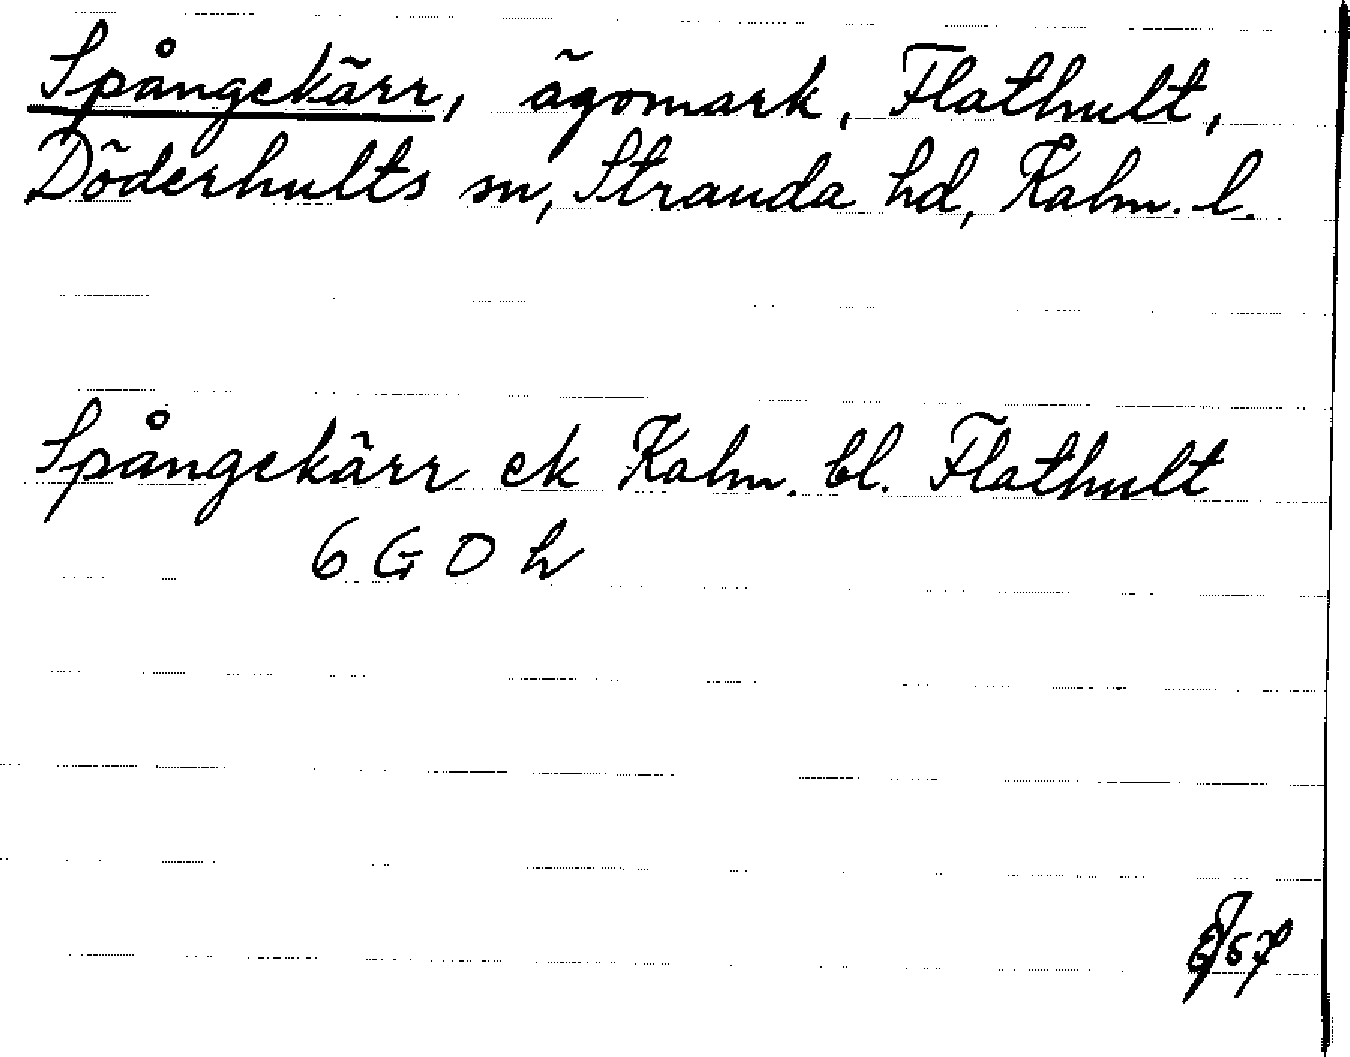 Spångekärr, ägomark, Flathult,
Döderhults sn, Stranda hd, Kalm. l.
Spångekärr ek Kalm. bl. Flathult
6 G O h